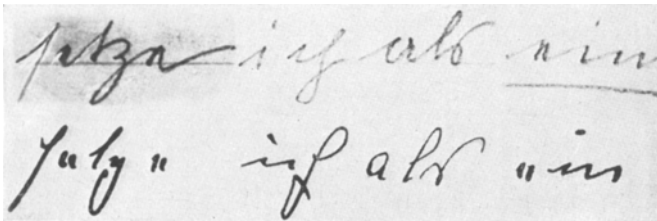 setze ich als ein
setze ich als ein